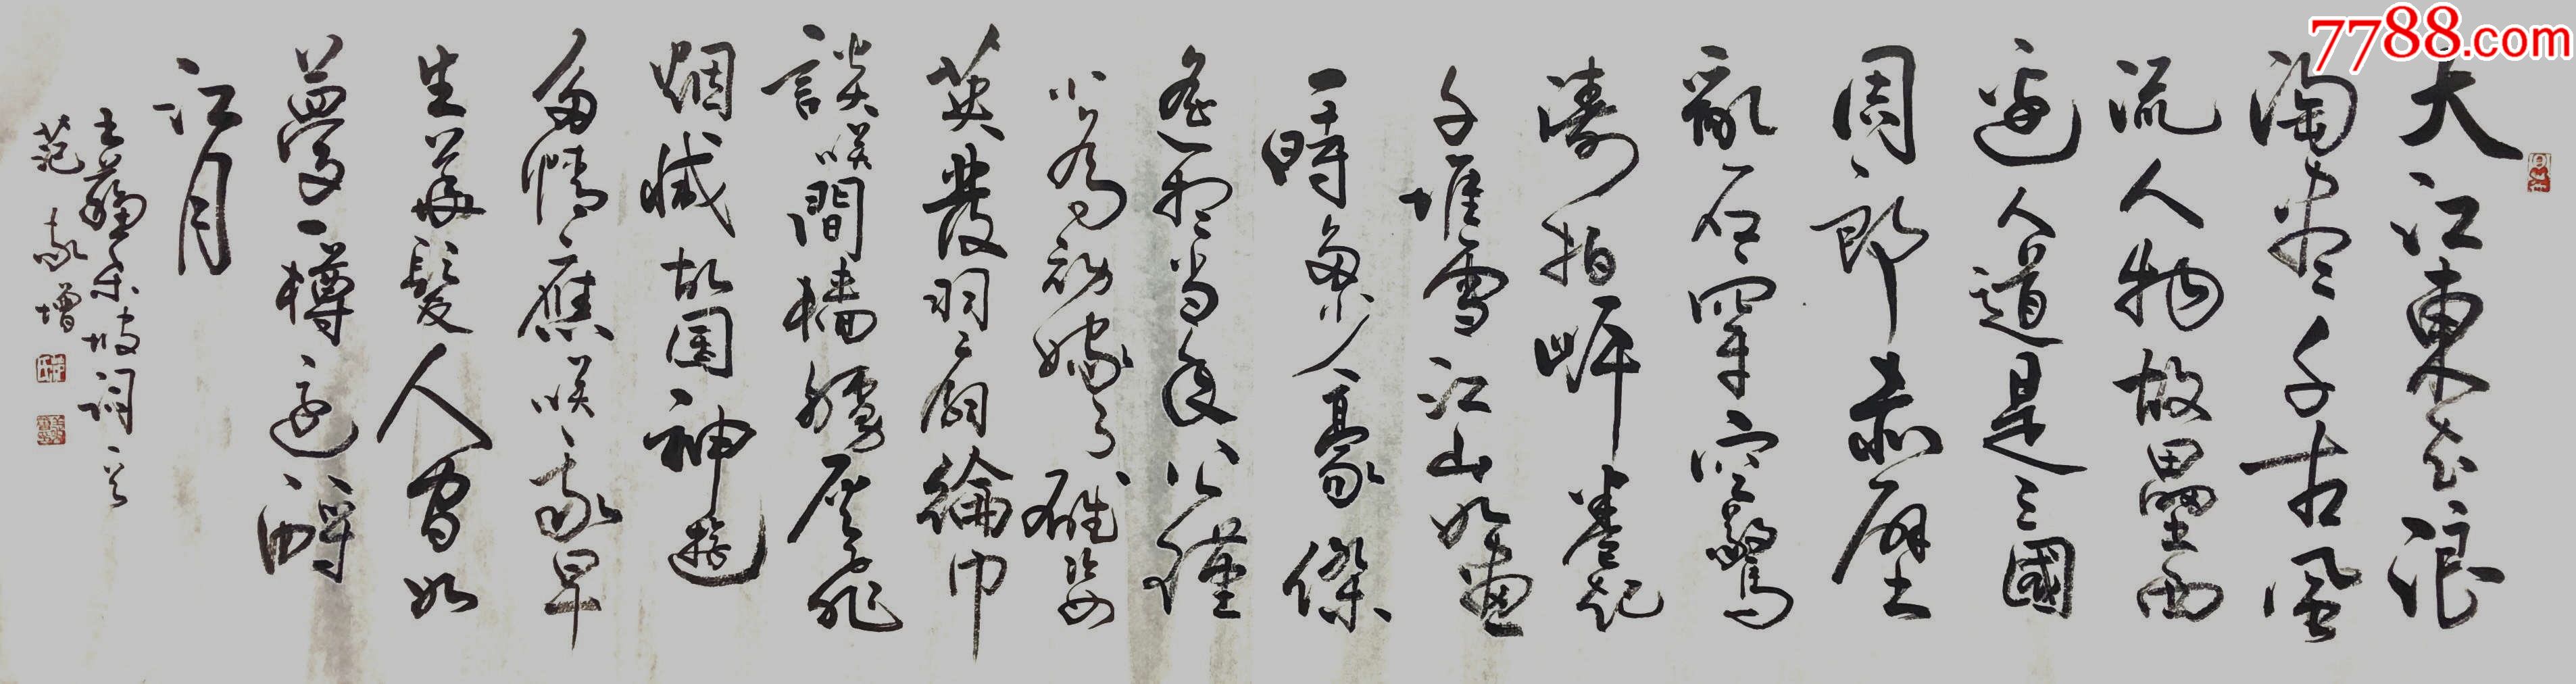 7788.com
大江東去浪
淘盡千古風
流人物故壘西
邊人道是三國
周郎赤壁
亂石穿空驚
濤拍岸卷起
千堆雪江山如畫
一時多少豪傑
遙想當年公瑾
小喬初嫁了雄姿
英發羽扇綸巾
談笑間檣艣灰飛
烟滅故国神遊
多情應笑我早
生華髮人間如
夢一樽還酹
江月
蘇東坡詞
范 增